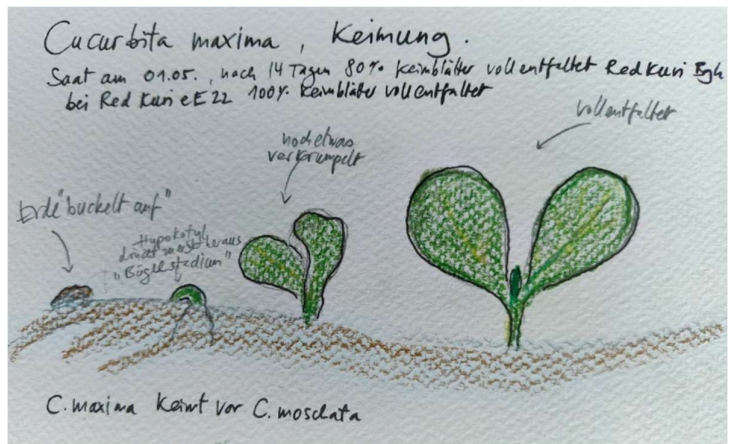 Cucurbita maxima, Keimung.
Saat am 01.05., nach 14 Tagen 80% Keimblätter voll entfaltet Red Kuri Bgh
bei Red Kuri eE 22 100% Keimblätter voll entfaltet
voll entfaltet
noch etwas
verkrumpelt
Erde "buckelt auf"
Hypokotyl
drückt zuerst heraus
"Bügelstadium"
C. maxima keimt vor C. moschata